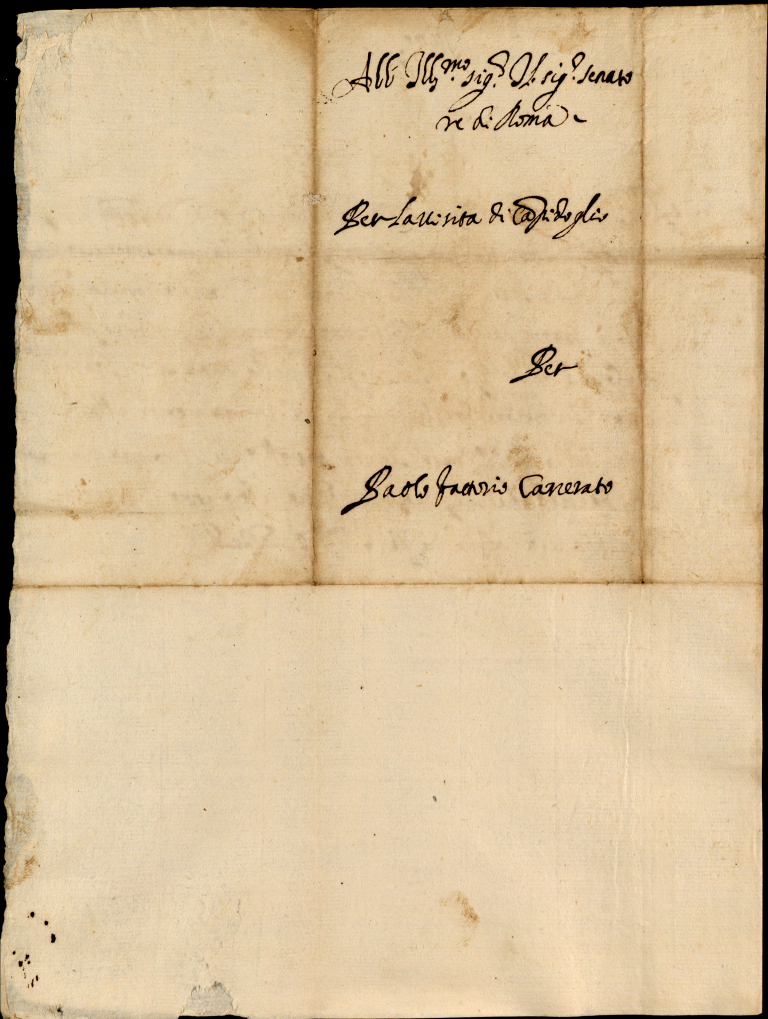 All Ill.mo sig.r Il sig.r senato
re di Roma
Per La visita di Capidoglio
Per
Paolo Carrerato